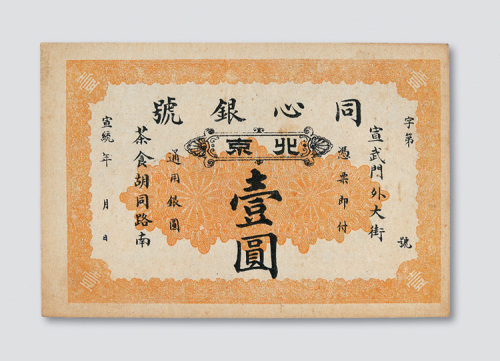 同心銀號
北京
字第　號
宣武門外大街
憑票即付
壹圓
通用銀圓
茶食胡同路南
宣統　年　月　日
壹
壹
壹
壹